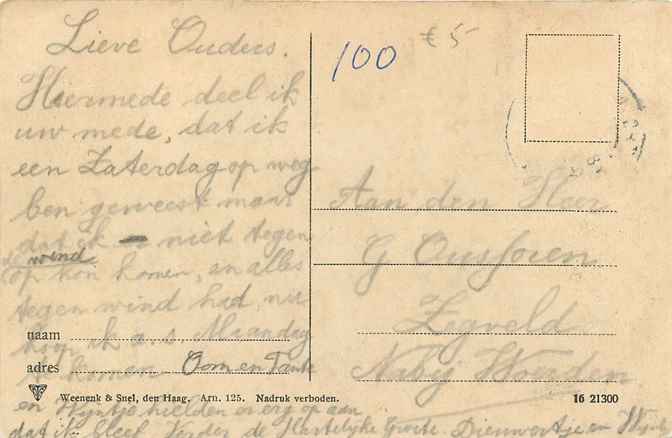 Lieve Ouders.
Hiermede deel ik
uw mede, dat ik
een Zaterdag op weg
ben geweest maar
dat ik niet tegen
de wind
op kon komen, en alles
tegen wind had, nu
hoop ik a.s. Maandag
te komen. Oom en Tante
en Wijntje hielden er erg op aan
dat ik bleef verder de Hartelijke Groete Dienwertje en
100
€ 5-
Aan den Heer
G
Zegveld
Nabij Woerden
naam
adres
Weenenk & Snel, den Haag. Arn. 125. Nadruk verboden.
16 21300